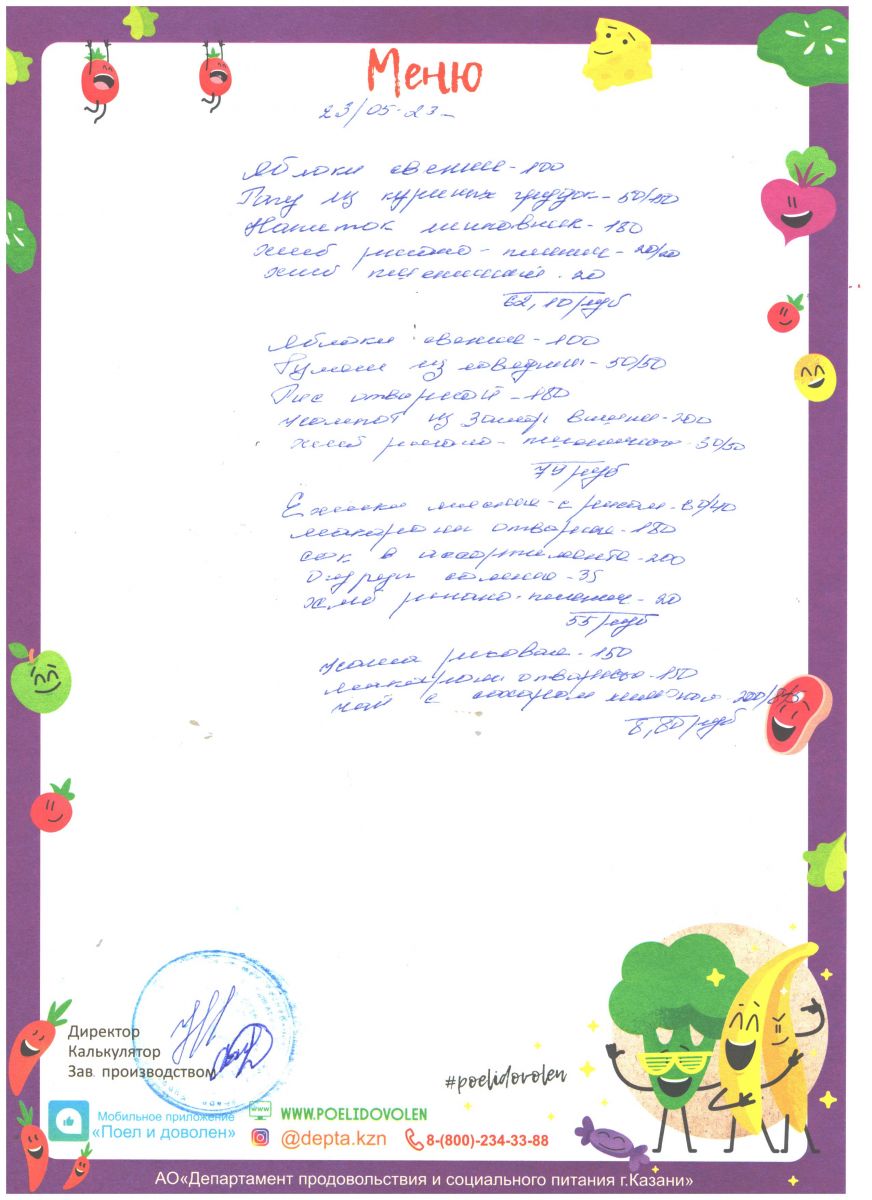 Меню
23/05-23-
Яблоки свежие - 100
Рагу из куриных грудок - 50/150
Напиток шиповник - 180
Хлеб ржано - пшенич - 20/20
Хлеб пшеничный - 20
62,10 руб
Яблоки свежие - 100
Гуляш из говядины - 50/50
Рис отварной - 180
Компот из замор вишни - 200
Хлеб ржано - пшеничного - 30/30
79 руб
Ежики мясные с рисом - 80/40
макароны отварные - 180
сок в ассортименте - 200
Огурец соленый - 35
Хлеб ржано - пшенич - 20
55 руб
Каша рисовая - 150
макароны отварные - 150
чай с сахаром 200/
8,80 руб
Директор
Калькулятор
Зав. производством
#poelidovolen
Мобильное приложение
«Поел и доволен»
www
WWW.POELIDOVOLEN
@depta.kzn
8-(800)-234-33-88
АО«Департамент продовольствия и социального питания г.Казани»